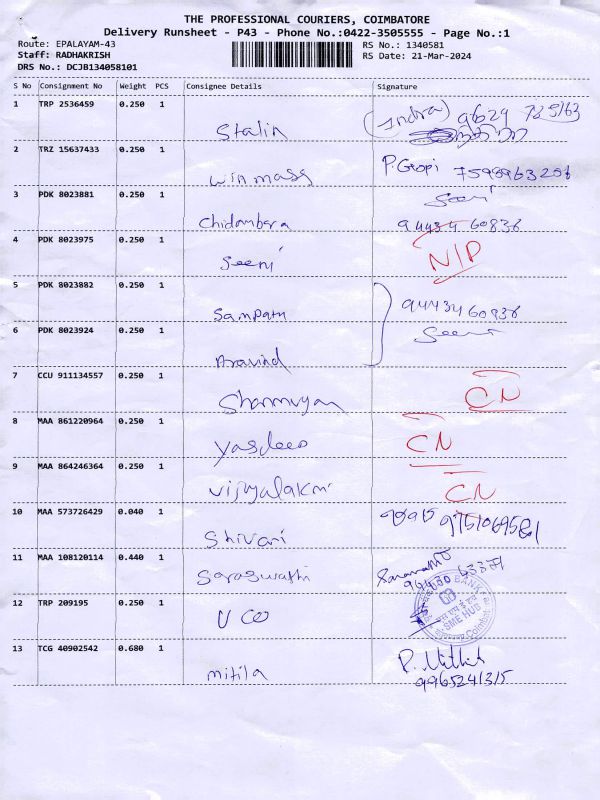 THE PROFESSIONAL COURIERS, COIMBATORE
Delivery Runsheet - P43 - Phone No.:0422-3505555 - Page No.:1
Route: EPALAYAM-43 RS No.: 1340581
Staff: RADHAKRISH RS Date: 21-Mar-2024
DRS No.: DCJB134058101
S No Consignment No Weight PCS Consignee Details Signature
1 TRP 2536459 0.250 1 Stalin (Indra) 9629 725163
2 TRZ 15637433 0.250 1 winmass P.Gopi 7598963206
3 PDK 8023881 0.250 1 Chidambera Seeni 94434 60838
4 PDK 8023975 0.250 1 Seeni N/P
5 PDK 8023882 0.250 1 Sampath 9443460838
6 PDK 8023924 0.250 1 Aravind Seeni
7 CCU 911134557 0.250 1 Shanmugan CN
8 MAA 861220964 0.250 1 Yasdeep CN
9 MAA 864246364 0.250 1 Vijiyalakmi CN
10 MAA 573726429 0.040 1 Shivani 9751069581
11 MAA 108120114 0.440 1 Saraswathi 94430 63371
12 TRP 209195 0.250 1 UCO BANK SME HUB
13 TCG 40902542 0.680 1 mitila P. Mithil
9965241315